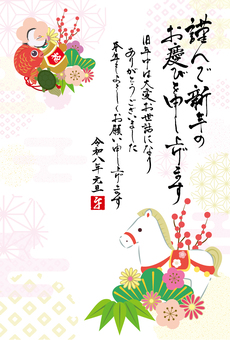 謹んで新年の
お慶びを申し上げます
旧年中は大変お世話になり
ありがとうございました
本年もよろしくお願い申し上げます
令和八年 元旦
午